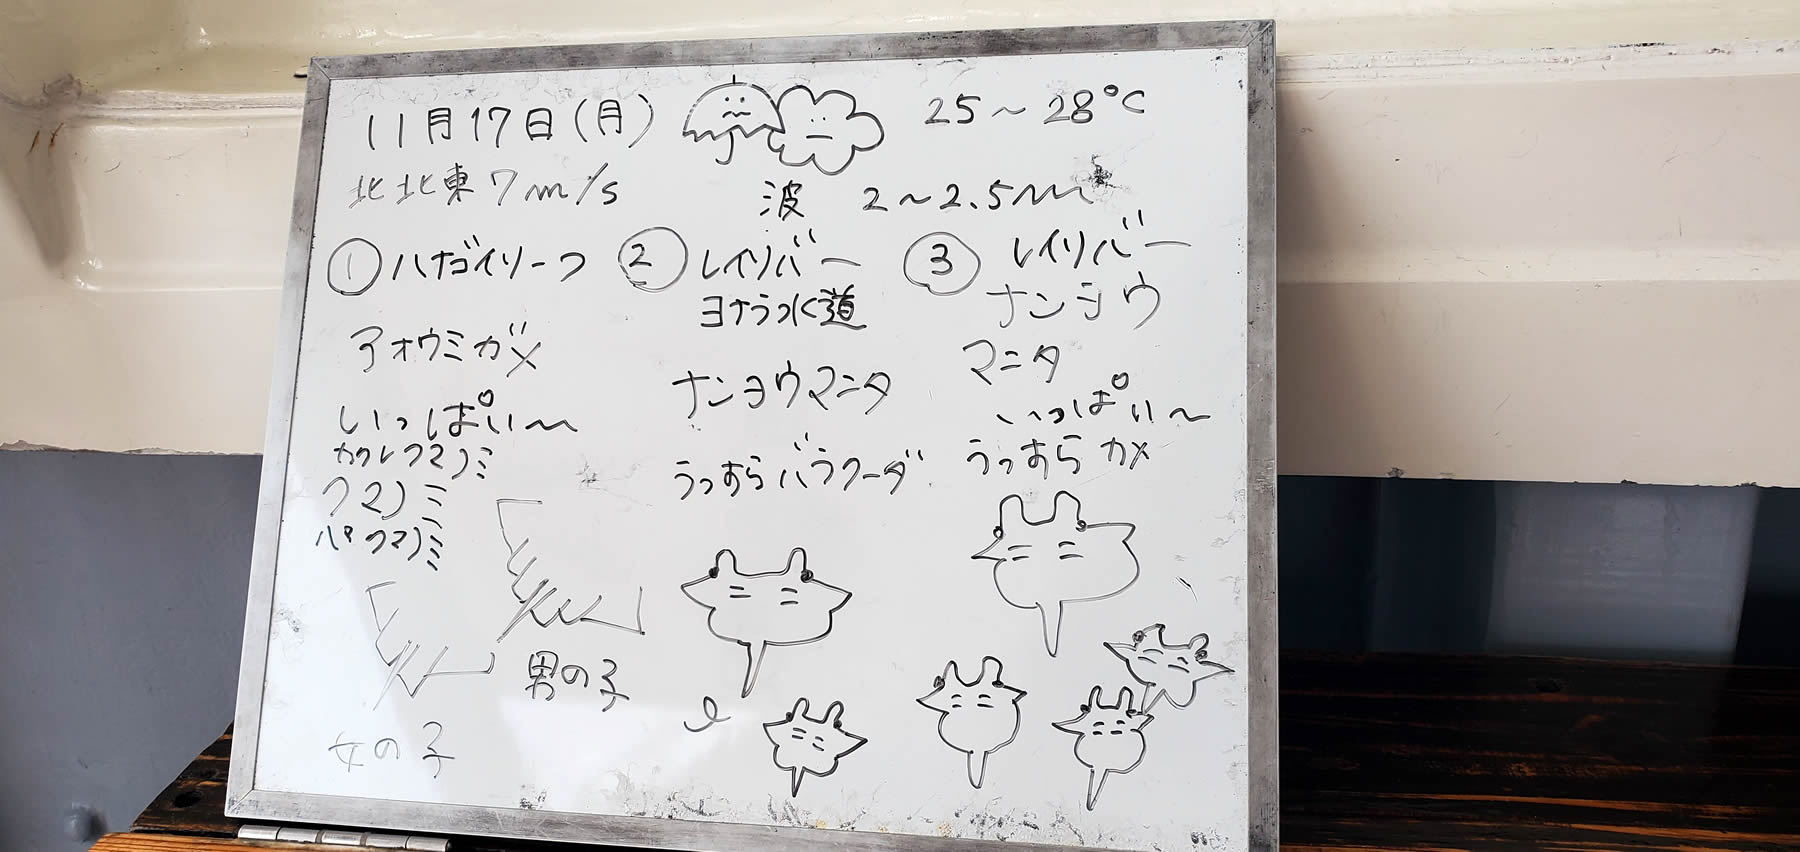 11月17日(月) 25～28℃
北北東7m/s 波 2～2.5m
① ハナゴイリーフ
アオウミガメ
いっぱい～
カクレクマノミ
クマノミ
ハマクマノミ
女の子
男の子
② レイリバー
ヨナラ水道
ナンヨウマンタ
うっすらバラクーダ
③ レイリバー
ナンヨウ
マンタ
いっぱい～
うっすらカメ